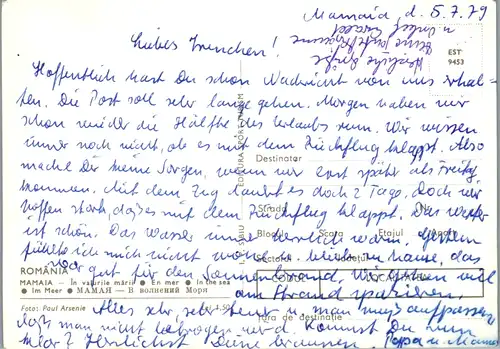 Mamaia d. 5.7.79
Liebes Trenchen!
Herzliche Grüße
Deine
u. Onkel
EST
9453
Hoffentlich hast Du schon Nachricht von uns erhal-
ten. Die Post soll sehr lange gehen. Morgen haben wir
schon wieder die Hälfte des Urlaubs rum. Wir wissen
immer noch nicht, ob es mit dem Rückflug klappt. Also
mache Dir keine Sorgen, wenn wir erst später als Freitag
kommen. Mit dem Zug dauert es doch 2 Tage. Doch wir
hoffen stark, daß es mit dem Rückflug klappt. Das Wetter
ist schön. Das Wasser immer herrlich warm. Gestern
fühlte ich mich nicht wohl u. blieb im Hause, das
war gut für den Sonnenbrand. Wir gehen viel
am Strand spazieren.
Alles sehr, sehr teuer u. man muß aufpassen,
daß man nicht betrogen wird. Kommst Du nun
klar? Herzlichst Deine Papa u. Mama
EDITURA SPORT-TURISM
Destinatar
Strada Nr.
Blocul Scara Etajul Apart.
Sectorul
CODUL LOCALITATEA
Țara de destinație
ROMÂNIA
MAMAIA — În valurile mării ● En mer ● In the sea
● Im Meer ● МАМАЯ — В волнений Мори
Foto: Paul Arsenie